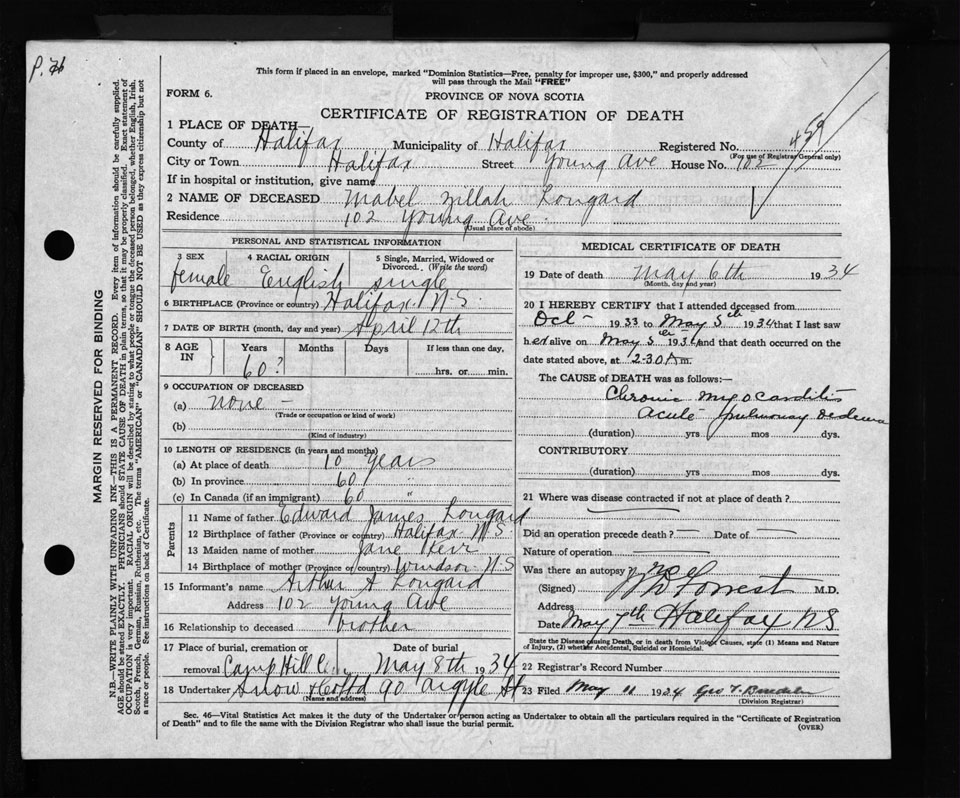 P. 76
This form if placed in an envelope, marked "Dominion Statistics—Free, penalty for improper use, $300," and properly addressed
will pass through the Mail "FREE"
FORM 6.
PROVINCE OF NOVA SCOTIA
CERTIFICATE OF REGISTRATION OF DEATH
1 PLACE OF DEATH—
County of Halifax Municipality of Halifax Registered No. 459
(For use of Registrar General only)
City or Town Halifax Street Young Ave House No. 102
If in hospital or institution, give name
2 NAME OF DECEASED Mabel Zillah Longard
Residence 102 Young Ave.
(Usual place of abode)
PERSONAL AND STATISTICAL INFORMATION
3 SEX 4 RACIAL ORIGIN 5 Single, Married, Widowed or
Divorced. (Write the word)
female English single
6 BIRTHPLACE (Province or country) Halifax. N.S.
7 DATE OF BIRTH (month, day and year) April 12th
8 AGE IN Years Months Days If less than one day,
60? hrs. or min.
9 OCCUPATION OF DECEASED
(a) none –
(Trade or occupation or kind of work)
(b)
(Kind of industry)
10 LENGTH OF RESIDENCE (in years and months)
(a) At place of death 10 years
(b) In province 60 "
(c) In Canada (if an immigrant) 60 "
Parents
11 Name of father Edward James Longard
12 Birthplace of father (Province or country) Halifax N.S.
13 Maiden name of mother Jane Kerr
14 Birthplace of mother (Province or country) Windsor N.S
15 Informant's name Arthur A Longard
Address 102 Young Ave
16 Relationship to deceased brother
17 Place of burial, cremation or Date of burial
removal Camp Hill Cem. May 8th 1934
18 Undertaker Snow & Co Ltd 90 Argyle St
(Name and address)
MEDICAL CERTIFICATE OF DEATH
19 Date of death May 6th 1934
(Month, day and year)
20 I HEREBY CERTIFY that I attended deceased from
Oct – 1933 to May 5th 1934 that I last saw
her alive on May 5th 1934 and that death occurred on the
date stated above, at 12-30 A m.
The CAUSE of DEATH was as follows:—
Chronic myocarditis
acute pulmonary oedema
(duration) yrs mos dys.
CONTRIBUTORY
(duration) yrs mos dys.
21 Where was disease contracted if not at place of death?
Did an operation precede death? — Date of —
Nature of operation —
Was there an autopsy no
(Signed) Forrest M.D.
Address
Date May 7th Halifax N.S.
State the Disease causing Death, or in death from Violent Causes, state (1) Means and Nature
of Injury, (2) whether Accidental, Suicidal or Homicidal.
22 Registrar's Record Number
23 Filed May 11 1934 Geo T.
(Division Registrar)
Sec. 46—Vital Statistics Act makes it the duty of the Undertaker or person acting as Undertaker to obtain all the particulars required in the "Certificate of Registration
of Death" and to file the same with the Division Registrar who shall issue the burial permit.
(OVER)
MARGIN RESERVED FOR BINDING
N.B.—WRITE PLAINLY WITH UNFADING INK—THIS IS A PERMANENT RECORD. Every item of information should be carefully supplied.
AGE should be stated EXACTLY. PHYSICIANS should STATE CAUSE OF DEATH in plain terms, so that it may be properly classified. Exact statement of
OCCUPATION is very important. RACIAL ORIGIN will be described by stating to what people or tongue the deceased person belonged, whether English, Irish,
Scotch, French, German, Russian, Ruthenian, etc. The terms "AMERICAN" or "CANADIAN" SHOULD NOT BE USED as they express citizenship but not
a race or people. See instructions on back of Certificate.